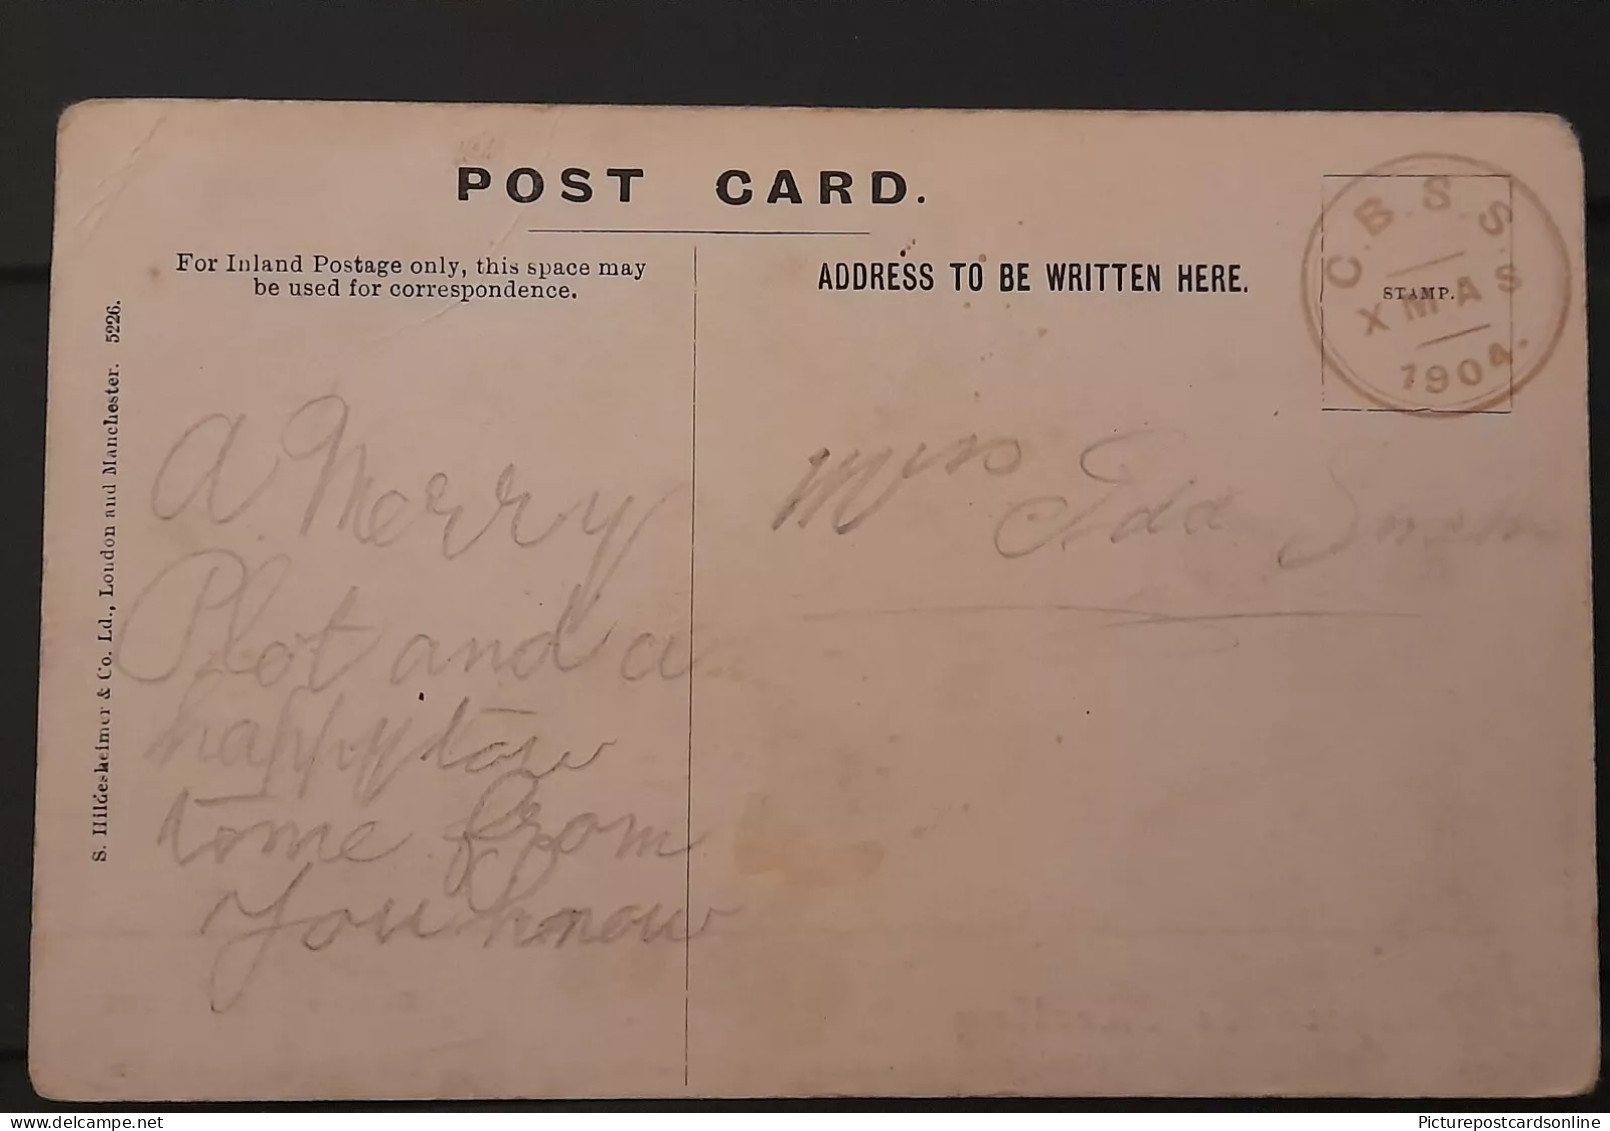 POST CARD.
For Inland Postage only, this space may
be used for correspondence.
ADDRESS TO BE WRITTEN HERE.
STAMP.
C.B.S.S.
XMAS
1904.
S. Hildesheimer & Co. Ld., London and Manchester. 5226.
A Merry
Plot and a
happy
time from
You know
Miss
Picturepostcardsonline